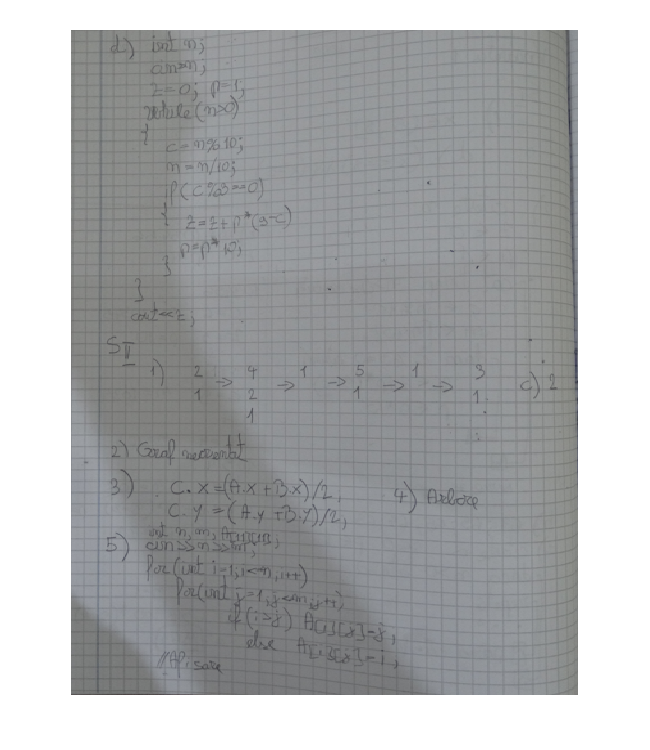 d) int n;
cin>>n;
z=0; p=1;
while(n>0)
{
c=n%10;
n=n/10;
if(c%3==0)
{ z=z+p*(9-c)
p=p*10;
}
}
cout<<z;
SII
1) 2 → 4 → 1 → 5 → 1 → 3 c) 2
1 2 1 1
1
2) Graf neorientat
3) C.x=(A.x+B.x)/2, 4) Arbore
C.y=(A.y+B.y)/2,
int n, m,
5) cin>>n>>m;
for(int i=1; i<=n, i++)
for(int j=1, j<=m, j++)
if(i>j) A[i][j]=j,
else A[i][j]=i,
//Afisare